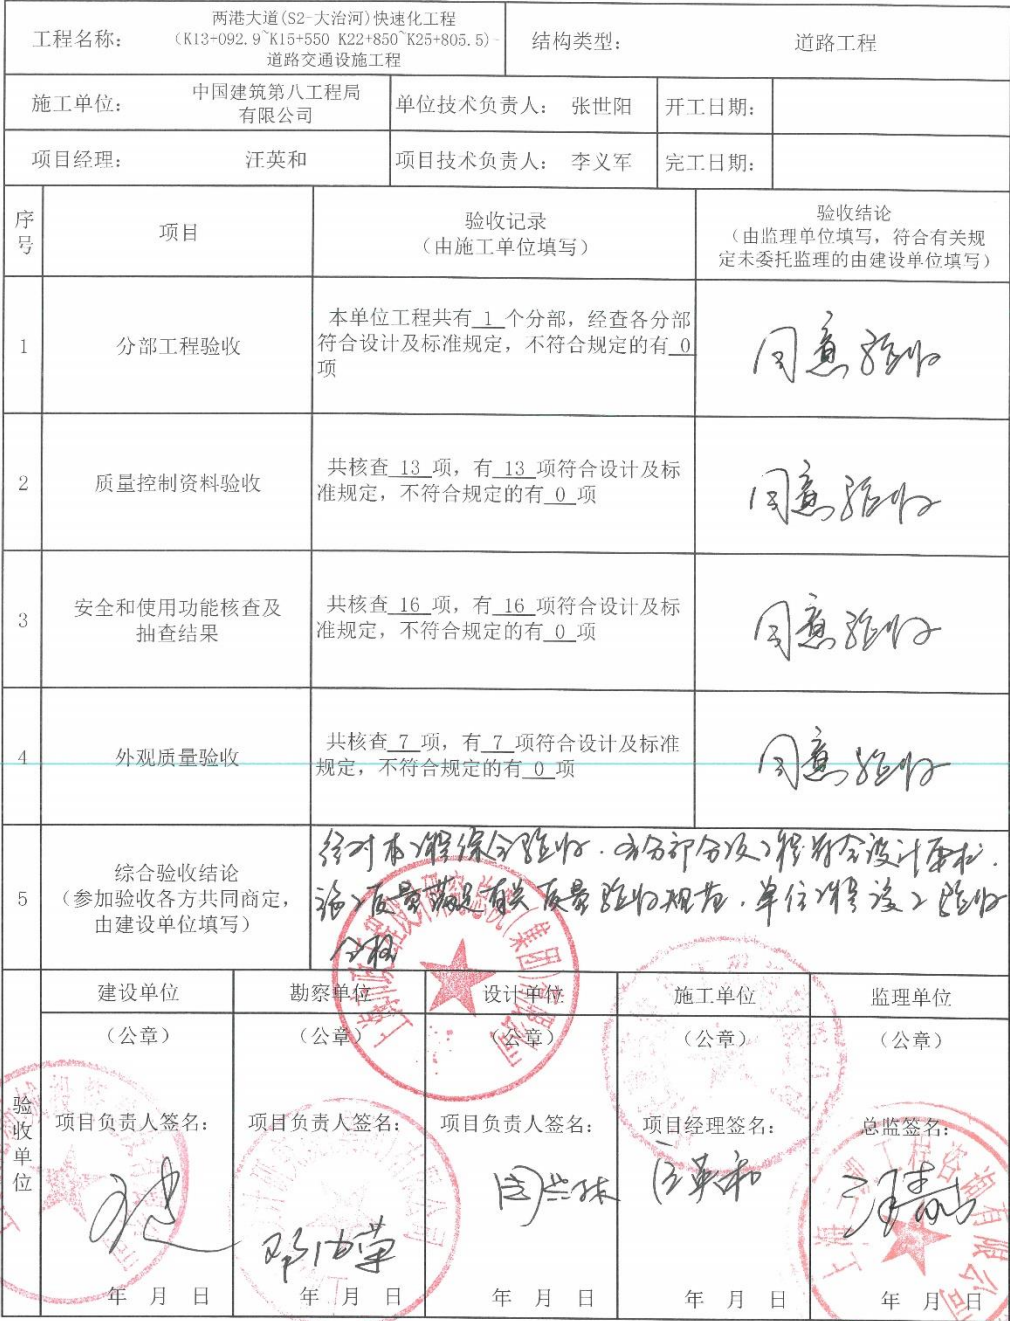 工程名称：
两港大道(S2-大治河)快速化工程
(K13+092.9~K15+550 K22+850~K25+805.5)-
道路交通设施工程
结构类型：
道路工程
施工单位：
中国建筑第八工程局
有限公司
单位技术负责人： 张世阳
开工日期：
项目经理：
汪英和
项目技术负责人： 李义军
完工日期：
序号
项目
验收记录
（由施工单位填写）
验收结论
（由监理单位填写，符合有关规
定未委托监理的由建设单位填写）
1
分部工程验收
本单位工程共有 1 个分部，经查各分部
符合设计及标准规定，不符合规定的有 0
项
同意验收
2
质量控制资料验收
共核查 13 项，有 13 项符合设计及标
准规定，不符合规定的有 0 项
同意验收
3
安全和使用功能核查及
抽查结果
共核查 16 项，有 16 项符合设计及标
准规定，不符合规定的有 0 项
同意验收
4
外观质量验收
共核查 7 项，有 7 项符合设计及标准
规定，不符合规定的有 0 项
同意验收
5
综合验收结论
（参加验收各方共同商定，
由建设单位填写）
经对本工程综合验收，各分部分项工程符合设计要求，
施工质量满足有关质量验收规范，单位工程竣工验收
合格
验收单位
建设单位
勘察单位
设计单位
施工单位
监理单位
（公章）
（公章）
（公章）
（公章）
（公章）
项目负责人签名：
项目负责人签名：
项目负责人签名：
项目经理签名：
总监签名：
汪英和
年 月 日
年 月 日
年 月 日
年 月 日
年 月 日